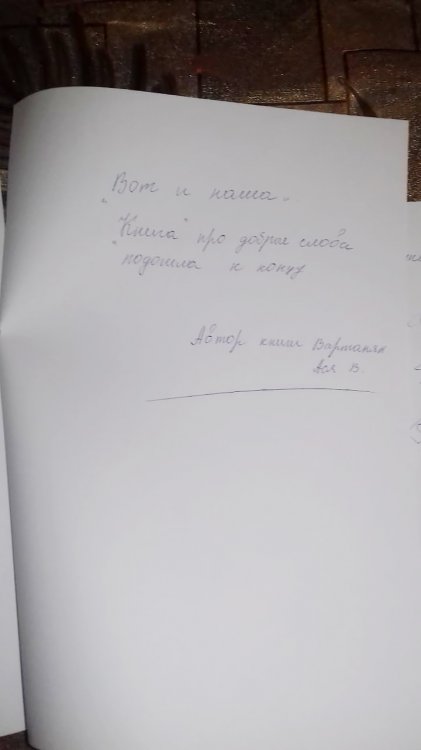 „Вот и наша„
„Книга" про добрые слова
подошла к концу
Автор книги Вартанян
Ася В.